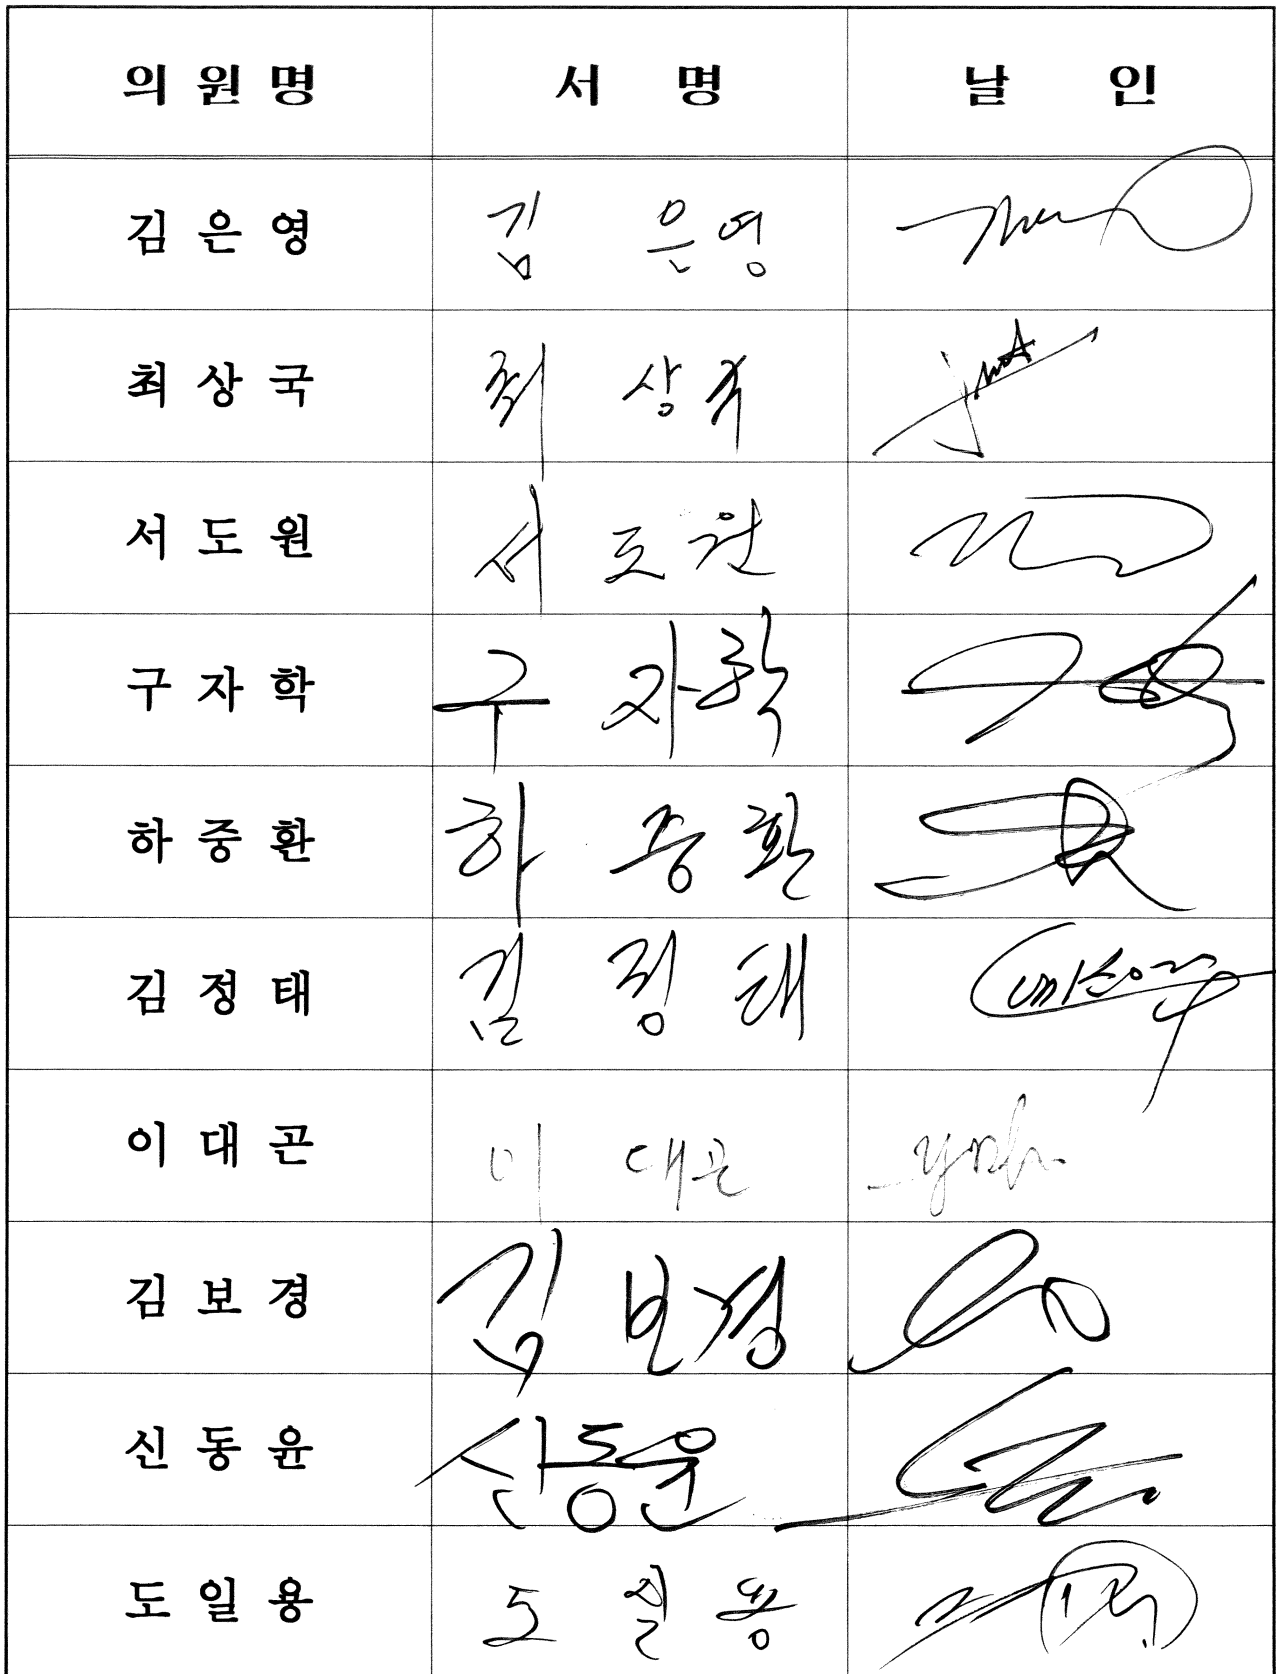 의원명 서 명 날 인
김은영 김 은영
최상국 최 상국
서도원 서 도원
구자학 구 자학
하중환 하 중환
김정태 김 정태
이대곤 이 대곤
김보경 김 보경
신동윤 신동윤
도일용 도 일 용